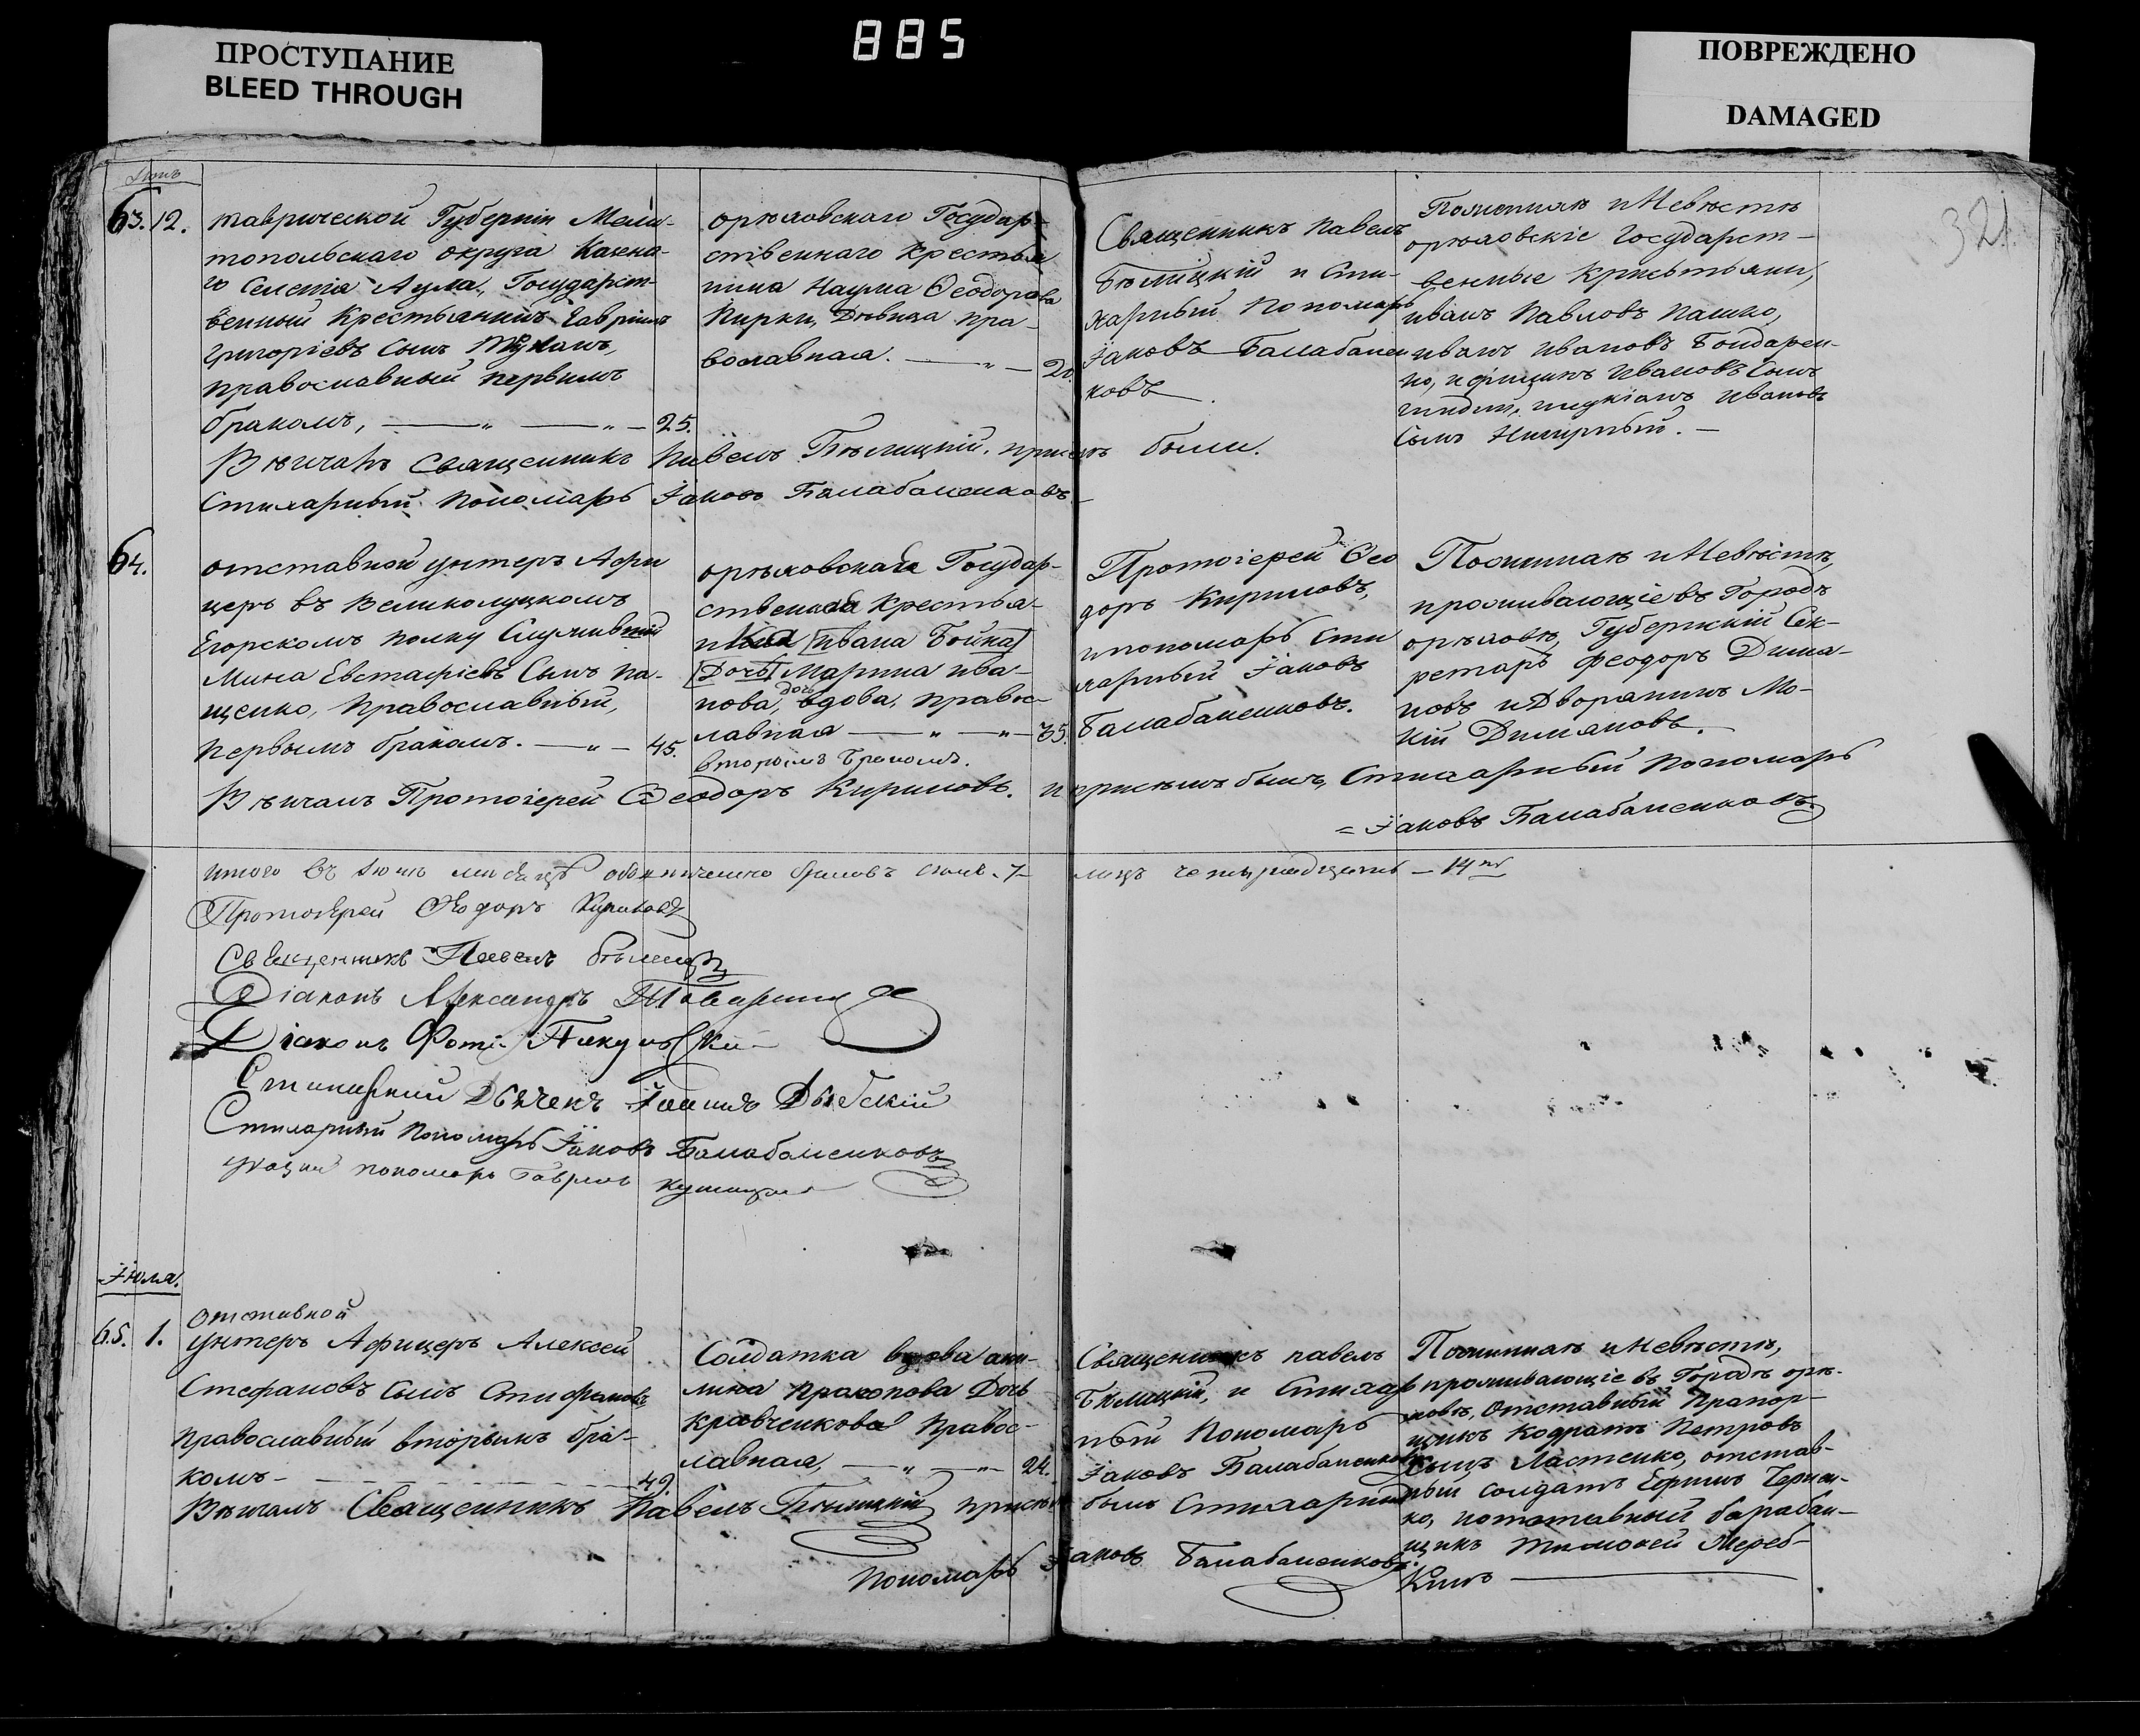 885
ПРОСТУПАНИЕ
BLEED THROUGH
ПОВРЕЖДЕНО
DAMAGED
321.
63. 12.
таврической Губерніи Мели-
топольскаго округа Казена-
го Селенія Аула, Государст-
венный Крестьянинъ Гавріилъ
Григоріевъ Сынъ
православный первымъ
бракомъ, — „ — „ — 25.
орѣховскаго Государ-
ственнаго Крестья
нина Наума Ѳеодорова
Кирки, Дѣвица пра-
вославная. — „ — 20.
Священникъ Павелъ
Бѣлицкій и Сти-
харный Пономарь
Іаковъ Балабанен
ковъ.
По женихѣ и Невѣстѣ
орѣховскіе Государст-
венные Крестьяни,
иванъ Павловъ Пашко,
иванъ ивановъ Бондарен-
ко, Ивановъ Сынъ
ивановъ
Сынъ. —
Вѣнчалъ Священникъ Павелъ Бѣлицкій, при семъ были.
Стихарный Пономарь Іаковъ Балабаненковъ. —
64.
отставной унтеръ Афи
церъ въ Великолуцкомъ
Егорскомъ полку Служивший
Мина Евстафіевъ Сынъ па-
щенко, Православный,
первымъ бракомъ. — „ — 45.
орѣховская Государ-
ственная Крестья-
нка ивана Бойка
Дочь Марина ива-
нова, дочь вдова, правос-
лавная — „ — „ — 35.
вторымъ Бракомъ.
Протоіерей Ѳео
доръ Кириловъ,
и пономарь Сти
харный Іаковъ
Балабаненковъ.
По женихѣ и Невѣстѣ,
проживающіе въ Городѣ
орѣховѣ, Губернскій Сек-
ретарь Феодоръ Дима-
новъ и Дворянинъ Мо-
кій Димановъ.
Вѣнчалъ Протоіерей Ѳеодоръ Кириловъ. и при семъ былъ, Стихарный Пономарь
= Іаковъ Балабаненковъ.
итого въ Іюнѣ мѣсяцѣ браковъ 7 — лицъ четырнадцать — 14
Протоіерей Ѳеодоръ Кириловъ
Священникъ Павелъ Бѣлицкій
Діаконъ Александръ
Діаконъ Фотій
Стихарный Дьячекъ
Стихарный Пономарь Іаковъ Балабаненковъ
пономарь Гавріилъ
Іюля.
65. 1.
Отставной
унтеръ Афицеръ Алексей
Стефановъ Сынъ Стефановъ
православный вторымъ бра-
комъ — 49.
Солдатка вдова аки-
лина прокопова Дочь
Кравченкова Правос-
лавная, — „ — „ — 24.
Священникъ павелъ
Бѣлицкій, и Стихар
ный Пономарь
Іаковъ Балабаненковъ
По женихѣ и Невѣстѣ,
проживающіе въ Городѣ орѣ-
ховѣ, Отставный Прапор-
щикъ Кодратъ Петровъ
Сынъ Ластенко, отстав-
ный солдатъ Ефимъ Чернен-
ко, и отставный бараban-
щикъ Тимофей Жереб-
Кинъ —
Вѣнчалъ Священникъ Павелъ Бѣлицкій при семъ былъ Стихарный
Пономарь Іаковъ Балабаненковъ.